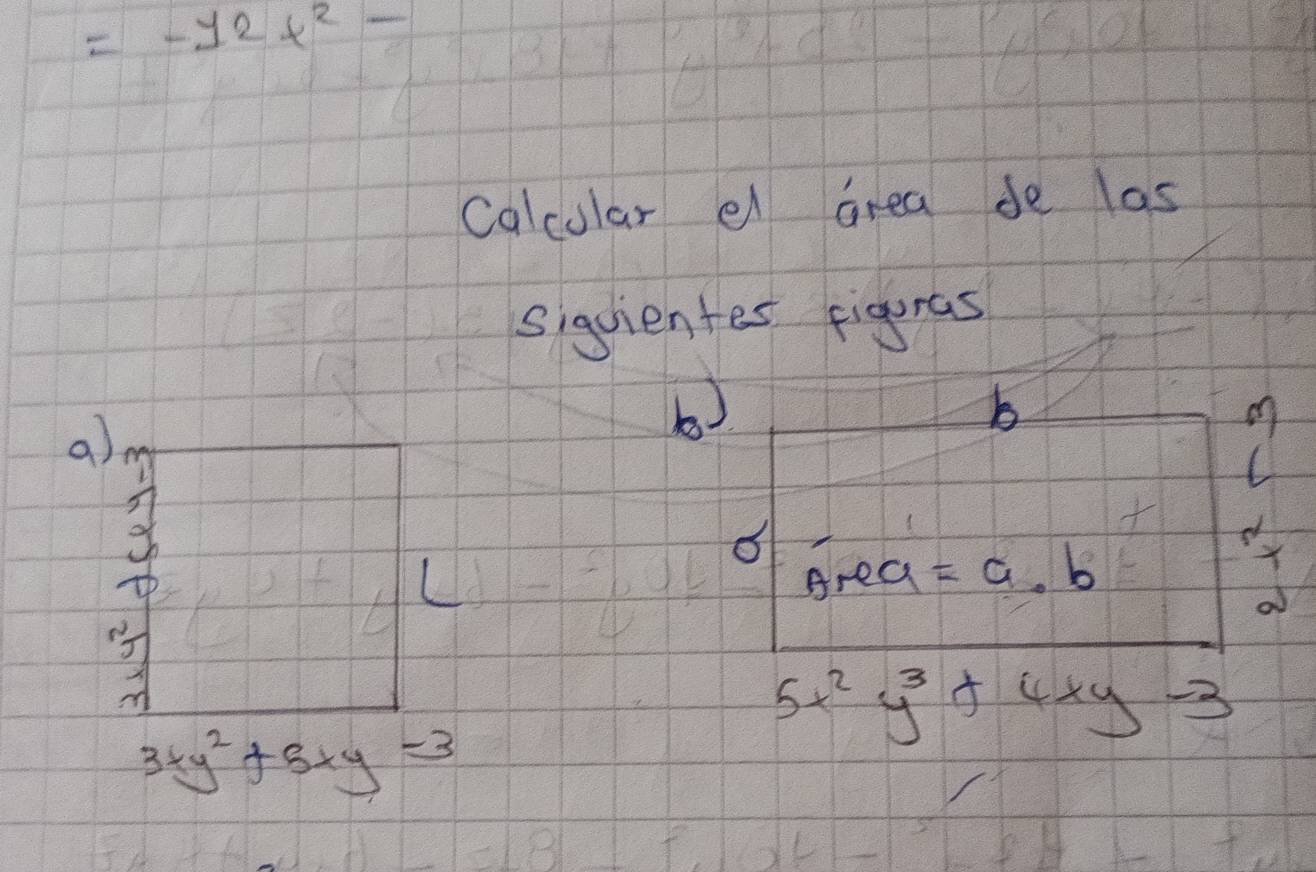 = -12x² -
Calcular el área de las
siguientes figuras
a)
3xy² + 5xy - 3
L
3xy² + 5xy - 3
b)
b
a
Área = a . b
5x² y³ + 4xy - 3